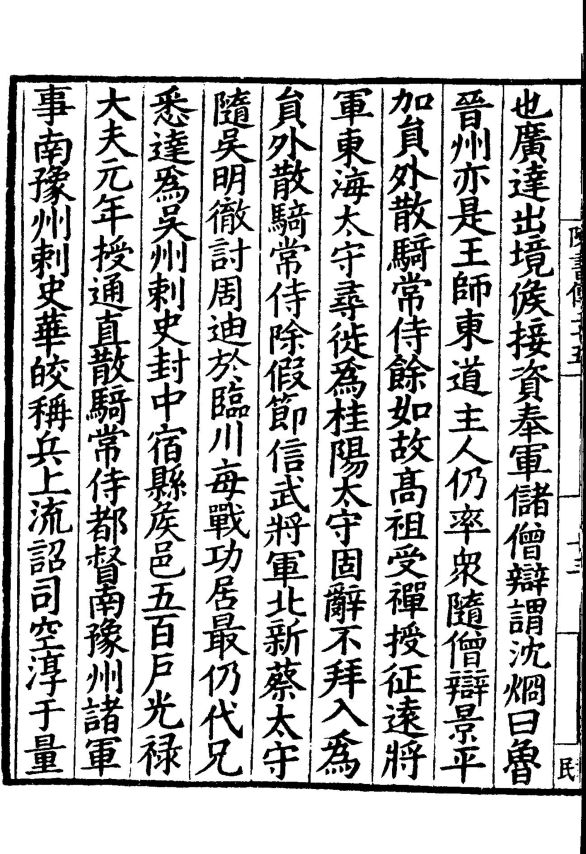 也廣達出境候接資奉軍儲僧辯謂沈烱曰魯
晉州亦是王師東道主人仍率衆隨僧辯景平
加負外散騎常侍餘如故高祖受禪授征遠將
軍東海太守尋徙為桂陽太守固辭不拜入為
負外散騎常侍除假節信武將軍北新蔡太守
隨吳明徹討周迪於臨川每戰功居最仍代兄
悉達為吳州刺史封中宿縣矦邑五百戶光禄
大夫元年授通直散騎常侍都督南豫州諸軍
事南豫州刺史華皎稱兵上流詔司空淳于量
民